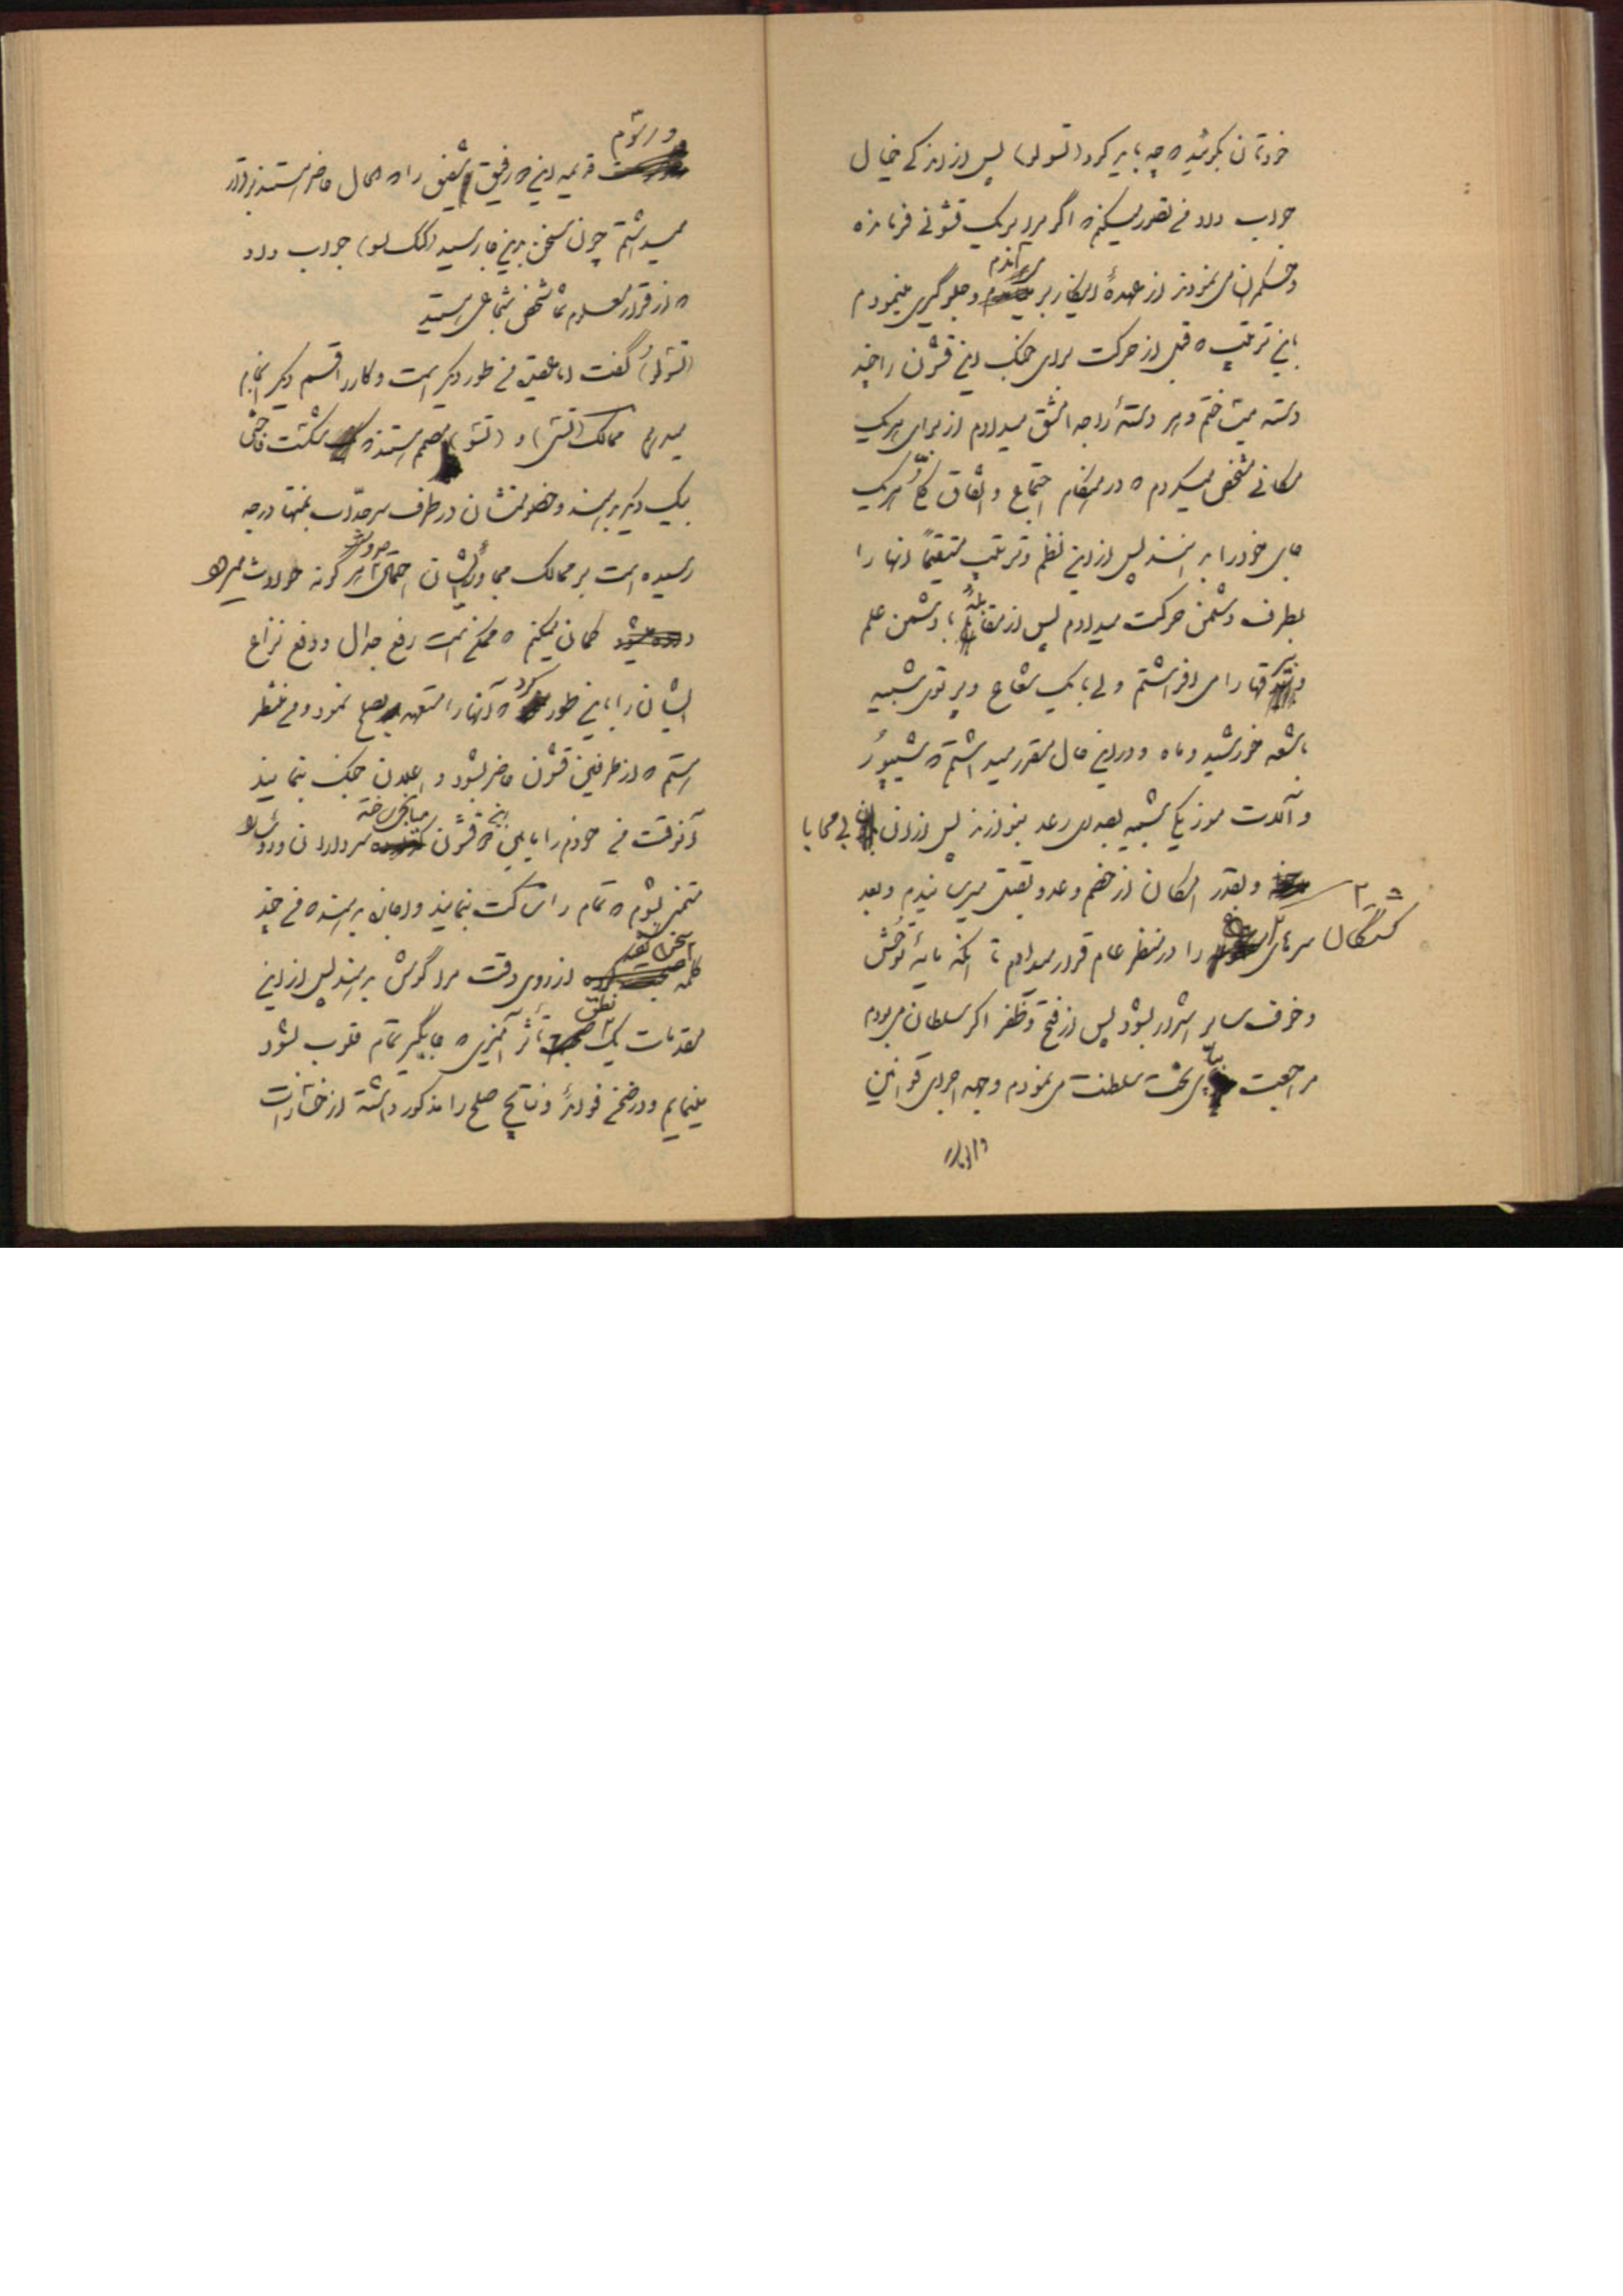 خودتان بگوئید که چه باید کرد (تسولو) پس از اندکی خیال
جواب داد من تصور میکنم که اگر مرا بر یک قشونی فرمانده
و حکمران می نمودند از عهدهٔ اینکار بر می آمدم و جلوگیری مینمودم
باین ترتیب که قبل از حرکت برای جنگ این قشون را چند
دسته میساختم و هر دستهٔ را جدا مشق میدادم از برای هر یک
مکانی مشخص میکردم که در هنگام اجتماع و اتفاق کل هر یک
جای خود را بدانند پس از این نظم و ترتیب مستقیماً آنها را
بطرف دشمن حرکت میدادم پس از مقابلهٔ با دشمن علم
و بیرقها را می افراشتم ولی با یک شعاع و پرتوی شبیه
باشعه خورشید و ماه و در این حال مقرر میداشتم که شیپور
و آلات موزیک شبیه بصدای رعد بنوازند پس از آن بی محابا
و بقدر امکان از خصم و عدو بقتل میرسانیدم و بعد
سرهای را در منظر عام قرار میدادم تا آنکه مایهٔ توحش
و خوف سایر اشرار بشود پس از فتح و ظفر اگر سلطان می بودم
مراجعت بپای تخت سلطنت می نمودم و جهه اجرای قوانین
و رسوم قدیمه این رفیق شفیق را که الحال حاضر هستند
میداشتم چون سخن بدین جا رسید (کنگ تسو) جواب داد
که از قرار معلوم شما شخص شجاعی هستید
(تسولو) گفت اما عقیده من طور دیگر است و کار را قسم دیگر انجام
میدهم ممالک (تسی) و (تسو) مصمم هستند که شکست فاحشی
بیک دیگر بدهند و خصومتشان در طرف سرحدات بمنتها درجه
رسیده است بر ممالک مجاورایشان احتمال هر گونه حوادث میرود
گمان میکنم که ممکن است رفع جدال و دفع نزاع
ایشان را باین طور کرد که آنها را متعهد بصلح نمود و من منتظر
هستم که از طرفین قشون حاضر بشود و اعلان جنگ بنمایند
آنوقت من خودم را باین قشون سرداران و رؤسا
متمنی بشوم که تمام را ساکت بنمایند و امان بدهند که من چند
کلمه سخن بگویم از روی دقت مرا گوش بدهند پس از این
مقدمات یک نطق تأثر آمیزی که جایگیر تمام قلوب بشود
مینمایم و در ضمن فواید و نتایج صلح را مذکور داشته از خسارات